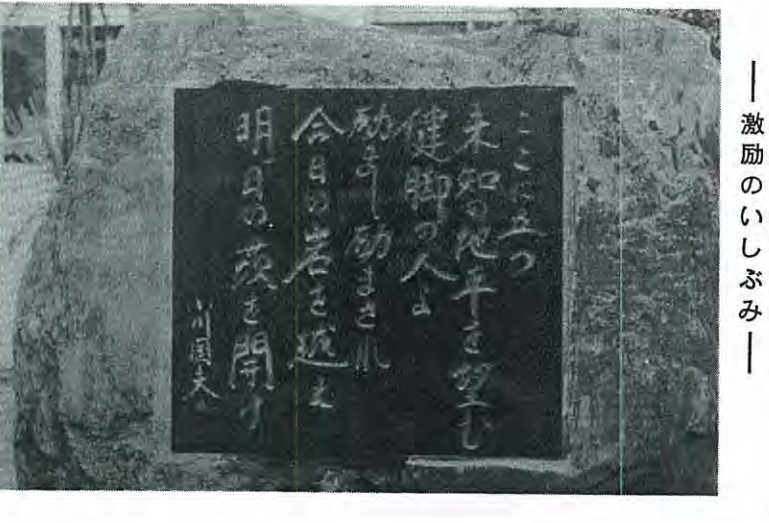 ―激励のいしぶみ―
ここに立つ
未知の地平を望む
健脚の人よ
励まし励まされ
今日の岩を越え
明日の茨を開
小川国夫